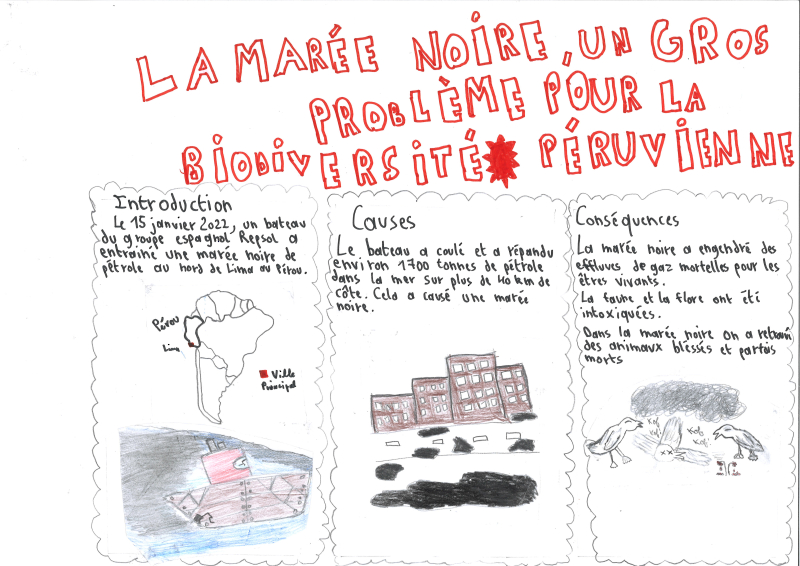 LA MARÉE NOIRE, UN GROS
PROBLÈME POUR LA
BIODIVERSITÉ PÉRUVIENNE
Introduction
Le 15 janvier 2022, un bateau
du groupe espagnol Repsol a
entrainé une marée noire de
pétrole au nord de Lima au Pérou.
Pérou
Lima
Ville
Principal
Causes
Le bateau a coulé et a répandu
environ 1700 tonnes de pétrole
dans la mer sur plus de 40 km de
côte. Cela a causé une marée
noire.
Conséquences
La marée noire a engendré des
effluves de gaz mortelles pour les
êtres vivants.
La faune et la flore ont été
intoxiquées.
Dans la marée noire on a retrouvé
des animaux blessés et parfois
morts